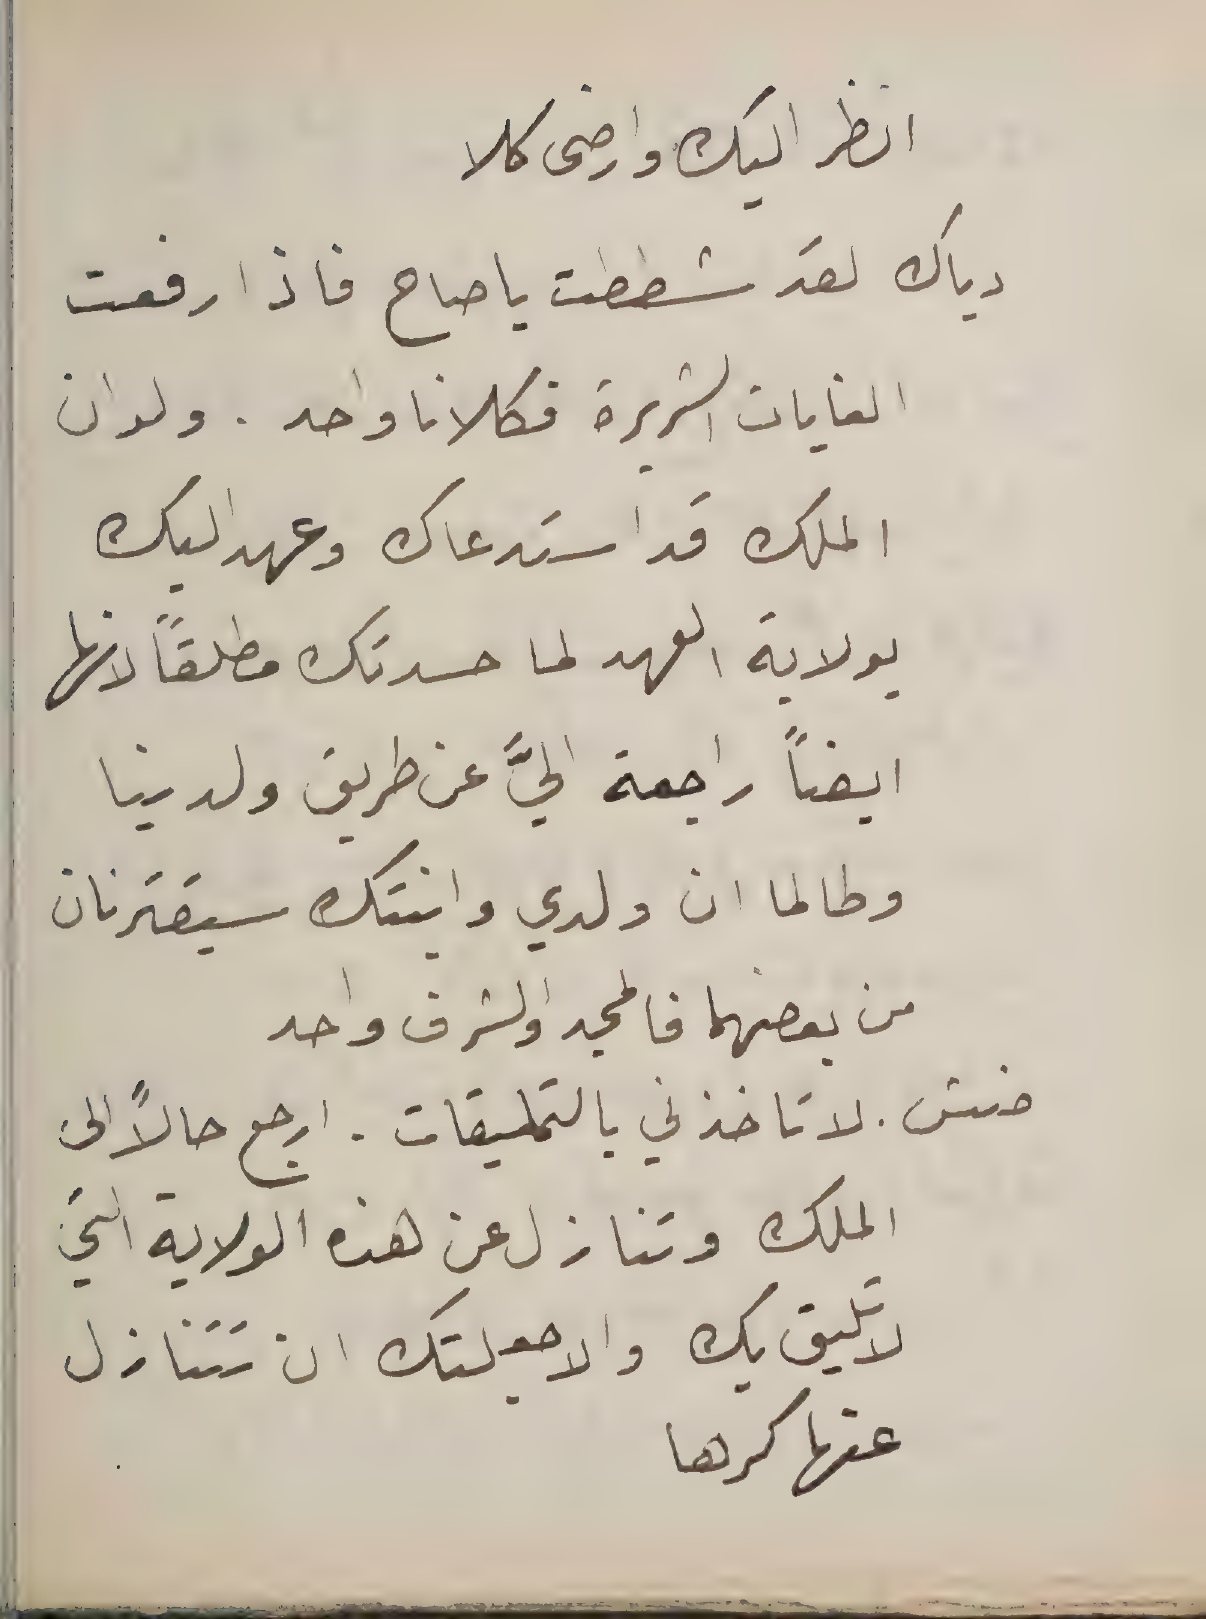 انظر اليك وارضى كلا
دياك لقد شططت ياصاح فاذا رفعت
الغايات الشريرة فكلانا واحد . ولو ان
الملك قد استدعاك وعهد اليك
بولاية العهد لما حسدتك مطلقاً لانها
ايضاً راجعة اليَّ عن طريق ولدينا
وطالما ان ولدي وابنتك سيقترنان
من بعضهما فالمجد والشرف واحد
ضنش . لا تاخذني بالتمليقات . ارجع حالاً الى
الملك وتنازل عن هذه الولاية التي
لا تليق بك والا جعلتك ان تتنازل
عنها كرها